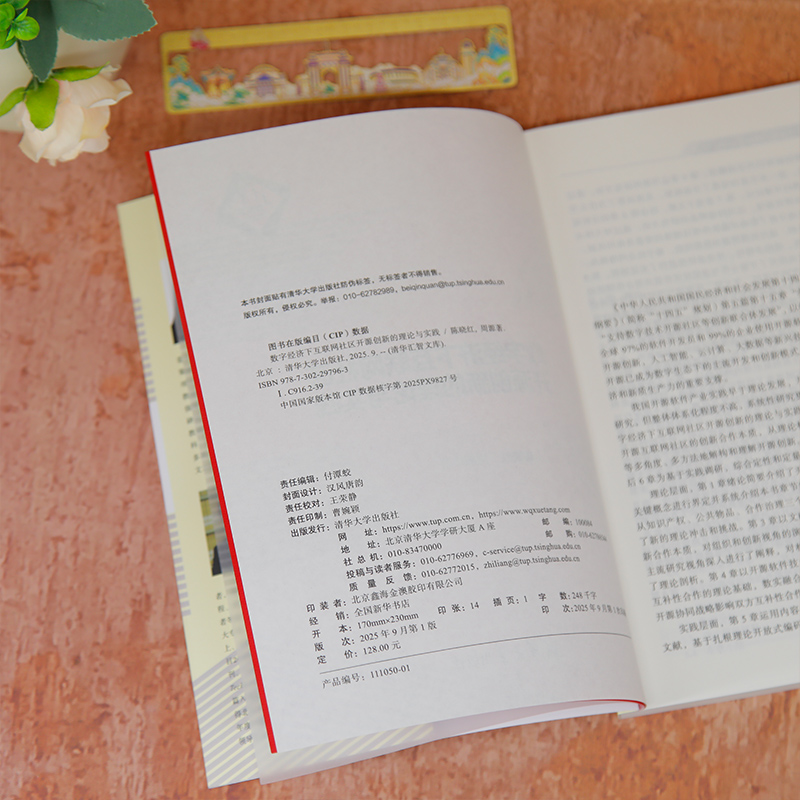 本书封面贴有清华大学出版社防伪标签，无标签者不得销售。
版权所有，侵权必究。举报：010-62782989，beiqinquan@tup.tsinghua.edu.cn
图书在版编目（CIP）数据
数字经济下互联网社区开源创新的理论与实践 / 陈晓红，周源著.
北京：清华大学出版社，2025. 9. --（清华汇智文库）.
ISBN 978-7-302-29796-3
Ⅰ. C916.2-39
中国国家版本馆 CIP 数据核字第 2025PX9827 号
责任编辑：付潭蛟
封面设计：汉风唐韵
责任校对：王荣静
责任印制：曹婉颖
出版发行：清华大学出版社
网 址：https://www.tup.com.cn, https://www.wqxuetang.com
地 址：北京清华大学学研大厦 A 座 邮 编：100084
社 总 机：010-83470000 邮 购：
投稿与读者服务：010-62776969, c-service@tup.tsinghua.edu.cn
质 量 反 馈：010-62772015, zhiliang@tup.tsinghua.edu.cn
印 装 者：北京鑫海金澳胶印有限公司
经 销：全国新华书店
开 本：170mm×230mm 印 张：14 插 页：1 字 数：248 千字
版 次：2025 年 9 月第 1 版 印 次：2025 年 9 月第
定 价：128.00 元
产品编号：111050-01
《中华人民共和国国民经济和社会发展第十四
纲要》（简称“十四五”规划）第五篇第十五章“
“支持数字技术开源社区等创新联合体发展”，以
全球 97%的软件开发者和 99%的企业使用开源
开源创新，人工智能、云计算、大数据等新兴
开源已成为数字生态中的主流开发和创新模式
济和新质生产力的重要支撑。
我国开源软件产业实践早于理论发展，
研究，但整体体系化程度不高，系统性研究
字经济下互联网社区开源创新的理论与实践
开源互联网社区的创新合作本质，从理论
等多角度、多方法地解构和理解开源创新
后 6 章为基于实践调研、综合定性和定量
理论层面，第 1 章绪论简要介绍了
关键概念进行界定并系统介绍本书章节
从知识产权、公共物品、合作治理三个
了新的理论冲击和挑战。第 3 章以文
新合作本质、对组织和创新视角的
主流研究视角深入进行了阐释，对
了理论剖析。第 4 章以开源软件技
互补性合作的理论基础，数实融合
开源协同战略影响双方互补性合作
实践层面，第 5 章运用内容
文献，基于扎根理论开放式编码